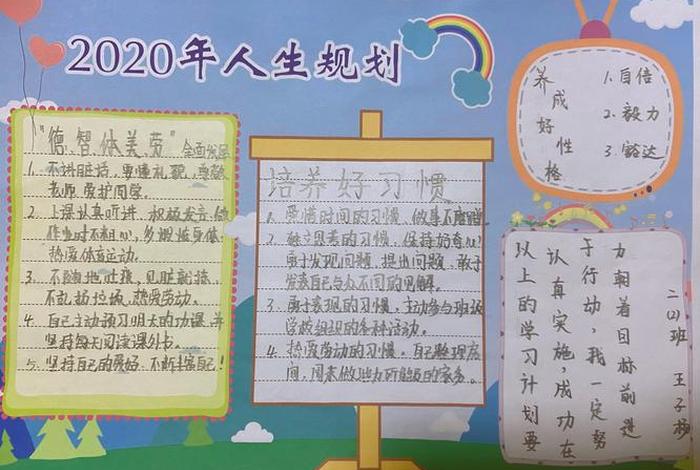 2020年人生规划
"德智体美劳"全面发展
1. 不讲脏话，要懂礼貌，尊敬
老师，爱护同学。
2. 上课认真听讲，积极发言，做
作业时不粗心，多锻炼身体，
热爱体育运动。
3. 不随地吐痰，见脏就捡，
不乱扔垃圾，热爱劳动。
4. 自己主动预习明天的功课，并
坚持每天阅读课外书。
5. 坚持自己的爱好，不断丰富自己！
培养好习惯
1. 爱惜时间的习惯，做事不磨蹭。
2. 独立思考的习惯，保持好奇心！
勇于发现问题，提出问题，敢于
发表自己与众不同的见解。
3. 勇于表现的习惯，主动参与班级
学校组织的各种活动。
4. 热爱劳动的习惯，自己整理房
间，周末做些力所能及的家务。
养成好性格
1. 自信
2. 毅力
3. 豁达
以上的学习计划要
认真实施，成功在
于行动，我一定努
力朝着目标前进
二(2)班 王子